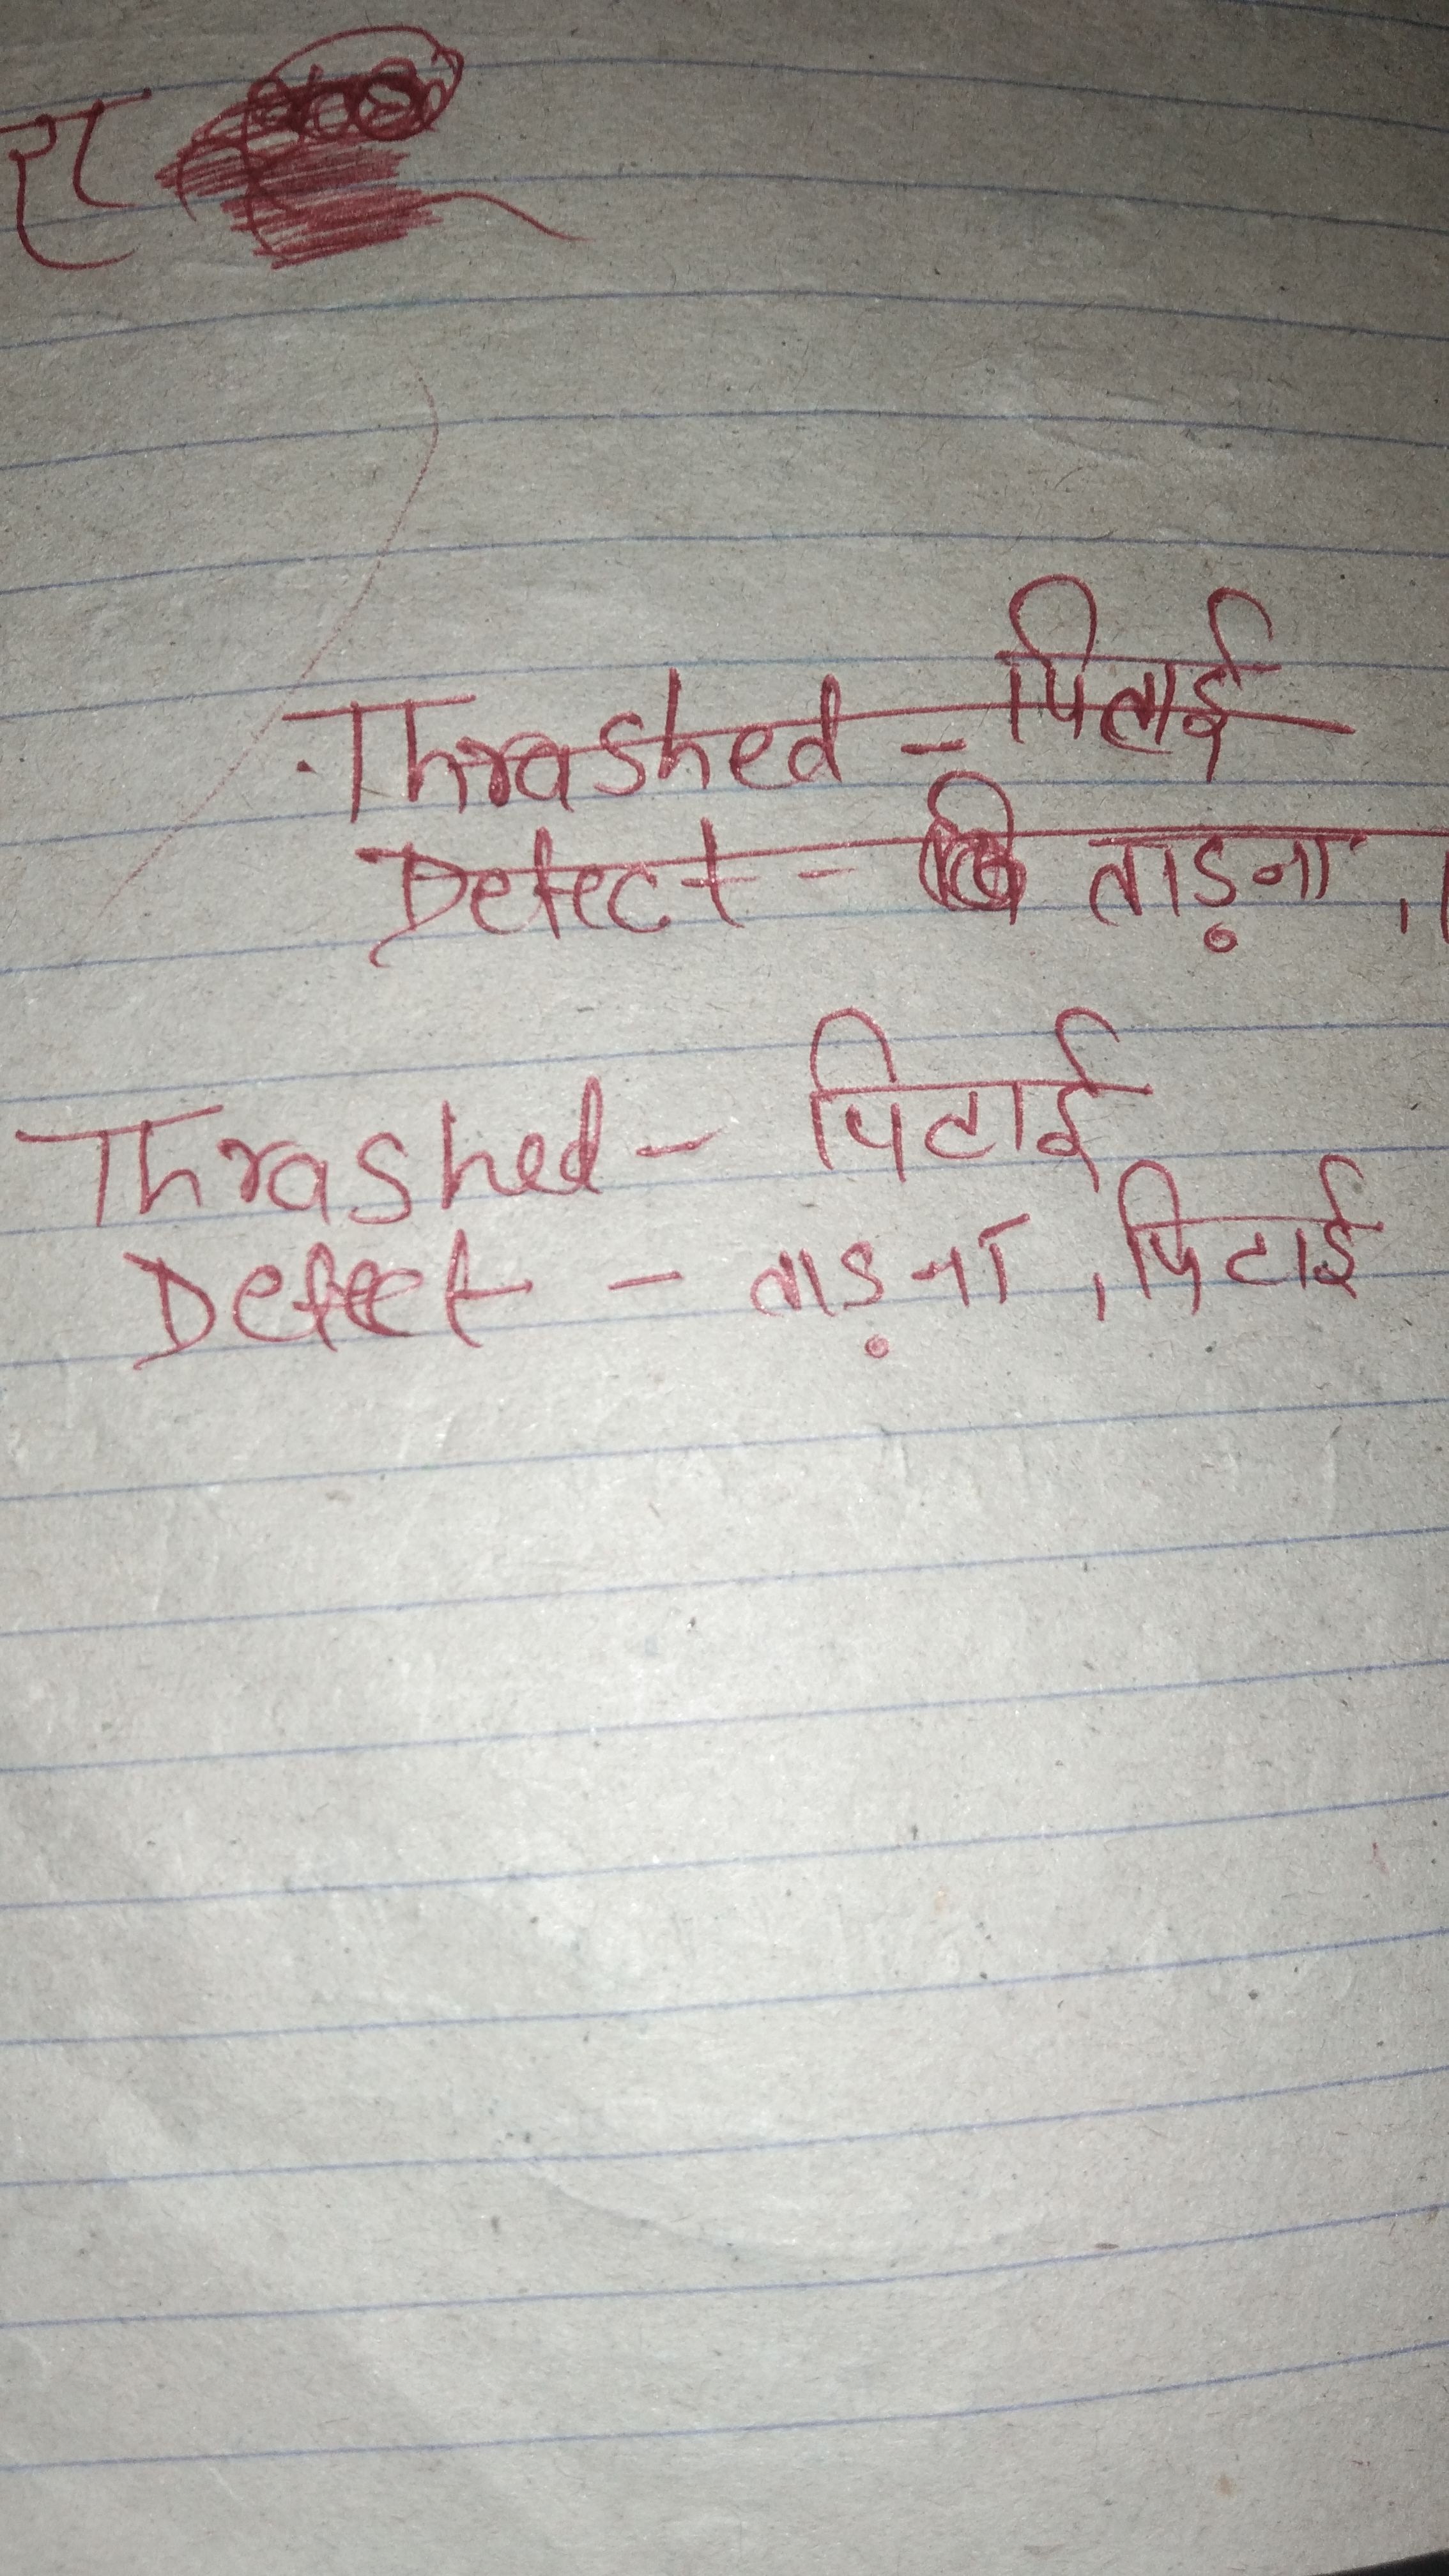 Thrashed - पिताई
Defect - ताड़ना,
Thrashed - पिटाई
Defect - ताड़ना, पिटाई